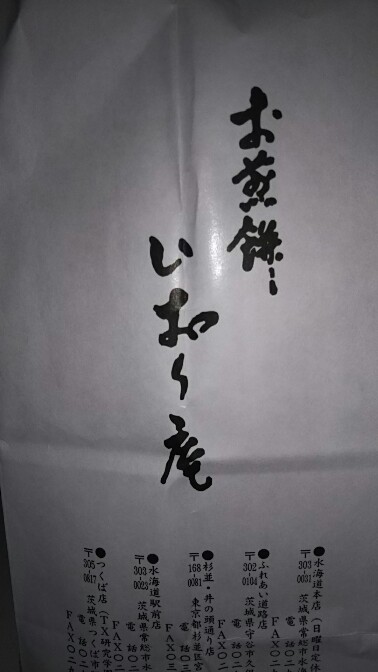 お煎餅
いおり庵
●水海道本店（日曜日定
〒303-0031 茨城県常総市水海
電話〇二
FAX〇二
●ふれあい道路店
〒302-0104 茨城県守谷市久
電話〇
FAX〇
●杉並・井の頭通り店
〒168-0081 東京都杉並区宮
電話〇三
FAX〇
●水海道駅前店
〒303-0023 茨城県常総市水
電話〇
FAX〇
●つくば店（TX研究学
〒305-0817 茨城県つくば市
電話〇二
FAX〇二